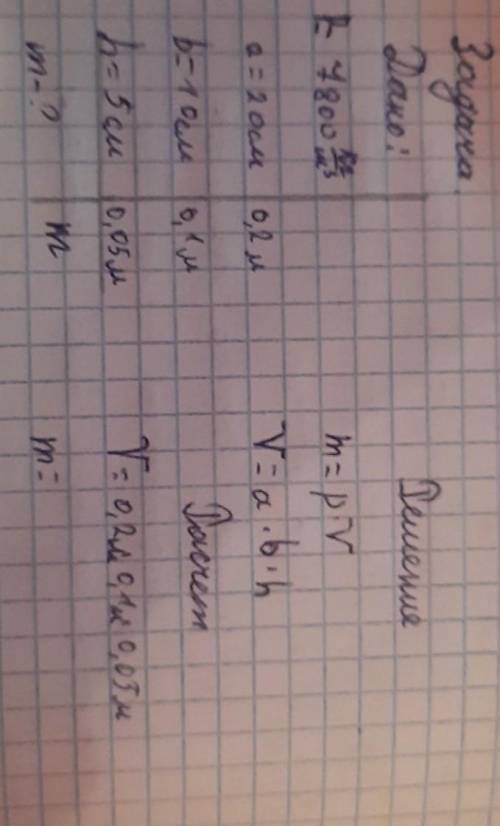 Задача
Дано:
ρ= 7800 кг/м³
a = 20см 0,2 м
b = 10см 0,1 м
h = 5 см 0,05 м
m - ? m
Решение
m = ρ·V
V = a · b · h
Расчет
V = 0,2м 0,1м 0,05 м
m =